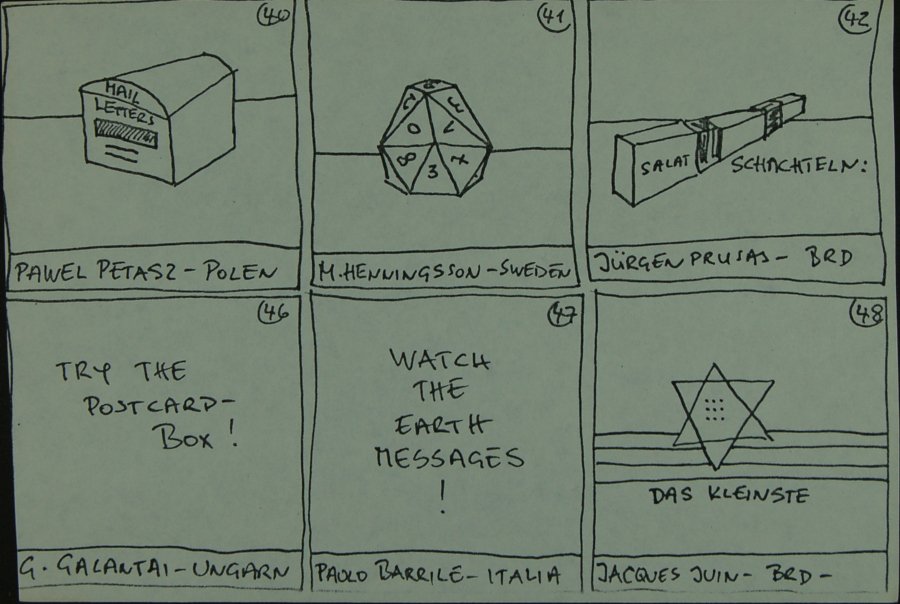 40
MAIL
LETTERS
PAWEL PETASZ - POLEN
41
0
8
3
M. HENNINGSSON - SWEDEN
42
SALAT
SCHACHTELN:
JÜRGEN PRUSAS - BRD
46
TRY THE
POSTCARD-
BOX!
G. GALANTAI - UNGARN
47
WATCH
THE
EARTH
MESSAGES
!
PAOLO BARRILE - ITALIA
48
DAS KLEINSTE
JACQUES JUIN - BRD -